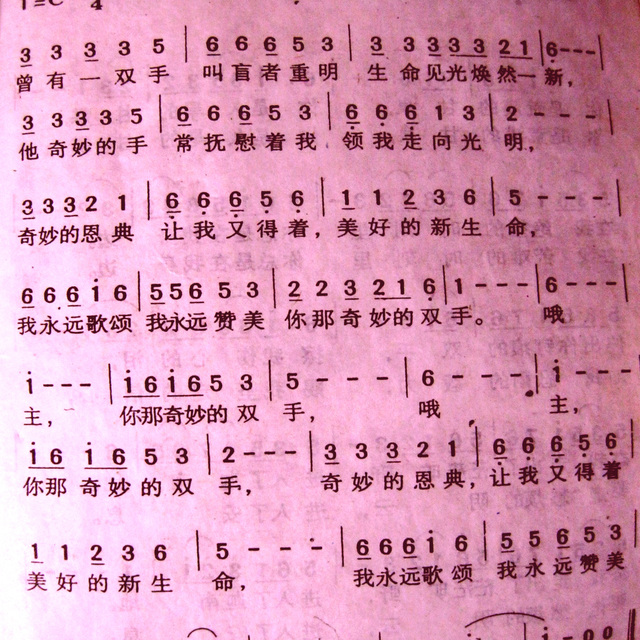 1=C 4
3 3 3 3 5 | 6 6 6 5 3 | 3 3 3 3 3 2 1 | 6 - - - |
曾有一双手 叫盲者重明 生命见光焕然一新，
3 3 3 3 5 | 6 6 6 5 3 | 6 6 6 1 3 | 2 - - - |
他奇妙的手 常抚慰着我 领我走向光 明，
3 3 3 2 1 | 6 6 6 5 6 | 1 1 2 3 6 | 5 - - - |
奇妙的恩典 让我又得着，美好的新生 命，
6 6 6 i 6 | 5 5 6 5 3 | 2 2 3 2 1 6 | 1 - - - | 6 - - -
我永远歌颂 我永远赞美 你那奇妙的双手。 哦
i - - - | i 6 i 6 5 3 | 5 - - - | 6 - - - | i - - -
主， 你那奇妙的双 手， 哦 主，
i 6 i 6 5 3 | 2 - - - | 3 3 3 2 1 | 6 6 6 5 6
你那 奇妙的双 手， 奇妙的恩典，让我又得着
1 1 2 3 6 | 5 - - - | 6 6 6 i 6 | 5 5 6 5 3 |
美好的新生 命， 我永远歌颂 我永远赞美